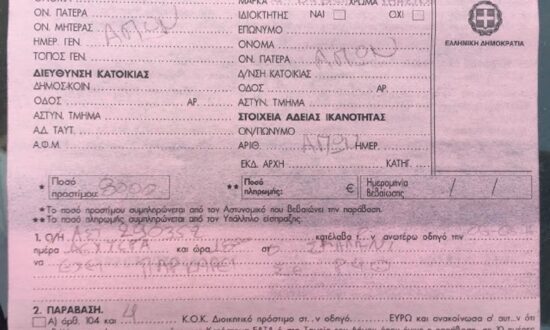 ΜΑΡΚΑ ΧΡΩΜΑ
ΟΝ. ΠΑΤΕΡΑ ΙΔΙΟΚΤΗΤΗΣ ΝΑΙ ΟΧΙ
ΟΝ. ΜΗΤΕΡΑΣ ΕΠΩΝΥΜΟ
ΗΜΕΡ. ΓΕΝ. ΑΠΩΝ ΟΝΟΜΑ ΑΠΩΝ
ΤΟΠΟΣ ΓΕΝ. ΟΝ. ΠΑΤΕΡΑ
ΕΛΛΗΝΙΚΗ ΔΗΜΟΚΡΑΤΙΑ
ΔΙΕΥΘΥΝΣΗ ΚΑΤΟΙΚΙΑΣ Δ/ΝΣΗ ΚΑΤΟΙΚΙΑΣ
ΔΗΜΟΣ-ΚΟΙΝ ΟΔΟΣ ΑΡ.
ΟΔΟΣ ΑΡ. ΑΣΤΥΝ. ΤΜΗΜΑ
ΑΣΤΥΝ. ΤΜΗΜΑ ΣΤΟΙΧΕΙΑ ΑΔΕΙΑΣ ΙΚΑΝΟΤΗΤΑΣ
ΑΔ. ΤΑΥΤ. ΟΝ/ΠΩΝΥΜΟ
Α.Φ.Μ. ΑΡΙΘ. ΑΠΩΝ ΗΜΕΡ.
ΕΚΔ. ΑΡΧΗ ΚΑΤΗΓ.
* Ποσό προστίμου: ** Ποσό πληρωμής: € Ημερομηνία Βεβαίωσης / /
*Το ποσό προστίμου συμπληρώνεται από τον Αστυνομικό που βεβαιώνει την παράβαση.
**Το ποσό πληρωμής συμπληρώνεται από τον Υπάλληλο είσπραξης.
1. Ο/Η κατέλαβα τ..ν ανωτέρω οδηγό την
ημέρα και ώρα
να
2. ΠΑΡΑΒΑΣΗ.
Α) άρθ. 104 και 4 Κ.Ο.Κ. Διοικητικό πρόστιμο στ..ν οδηγό. ΕΥΡΩ και ανακοίνωσα σ' αυτ..